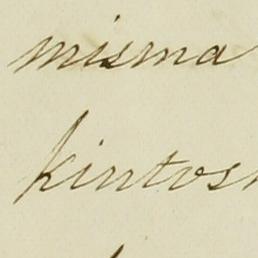 misma
kintosh